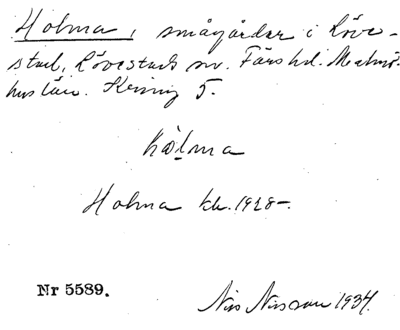 Holma, smågårdar i Löve-
stad, Lövestads sn. Färs hd. Malmö-
hus län. Kring 5.
Hålma
Holma kk. 1928-.
Nr 5589.
Nils Nilsson 1934.